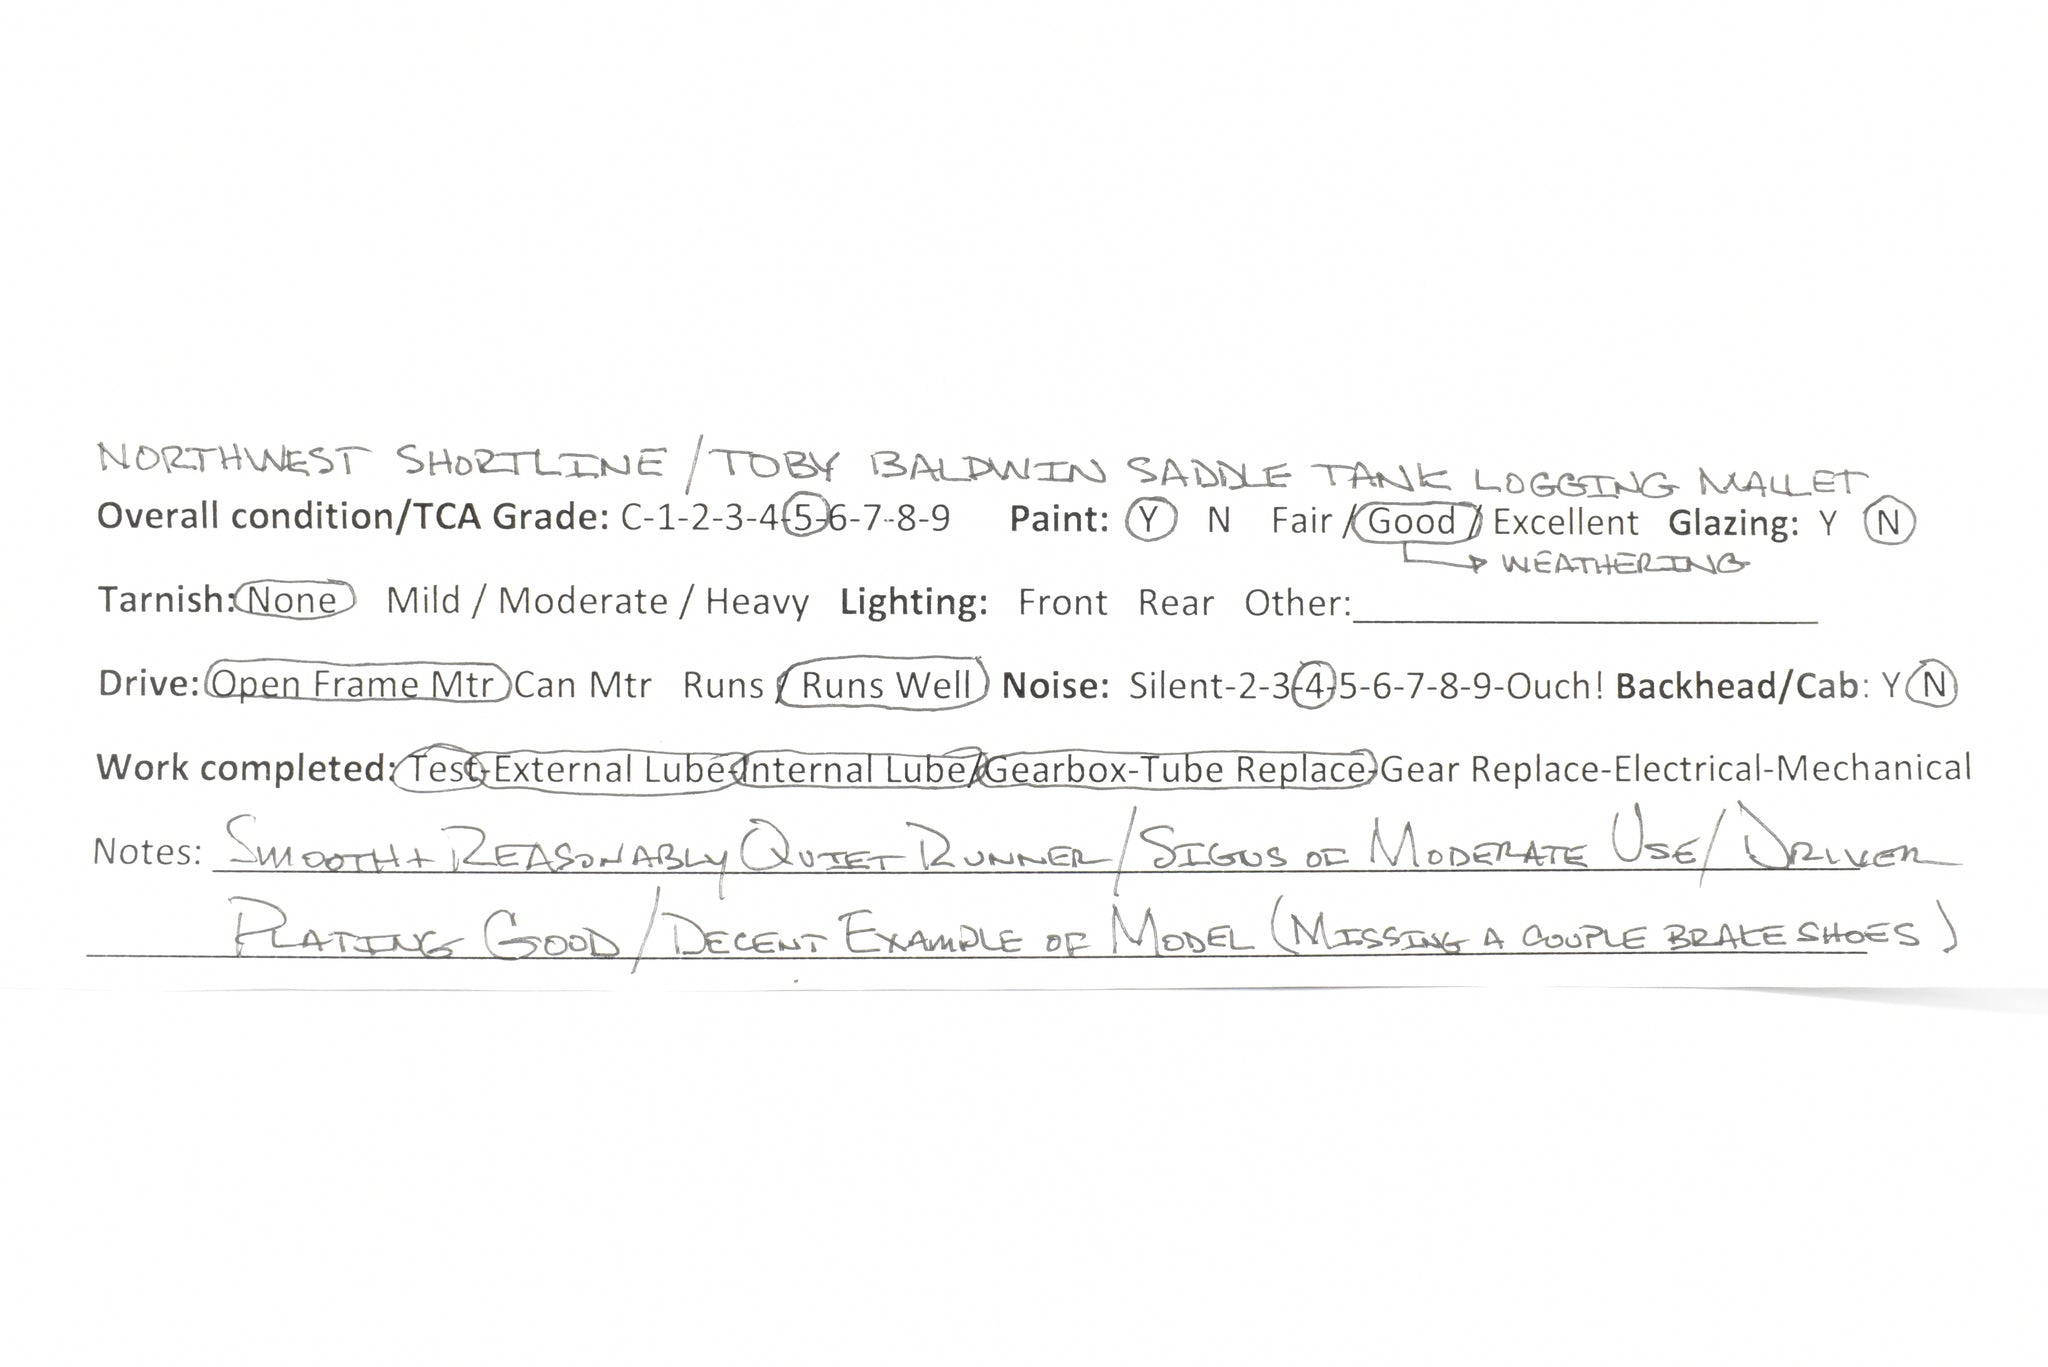 NORTHWEST SHORTLINE / TOBY BALDWIN SADDLE TANK LOGGING MALLET
Overall condition/TCA Grade: C-1-2-3-4-5-6-7-8-9 Paint: Y N Fair / Good / Excellent Glazing: Y N
WEATHERING
Tarnish: None Mild / Moderate / Heavy Lighting: Front Rear Other:
Drive: Open Frame Mtr Can Mtr Runs / Runs Well Noise: Silent-2-3-4-5-6-7-8-9-Ouch! Backhead/Cab: Y N
Work completed: Test-External Lube-Internal Lube/Gearbox-Tube Replace-Gear Replace-Electrical-Mechanical
Notes: SMOOTH + REASONABLY QUIET RUNNER / SIGNS OF MODERATE USE / DRIVER
PLATING GOOD / DECENT EXAMPLE OF MODEL (MISSING A COUPLE BRAKE SHOES)